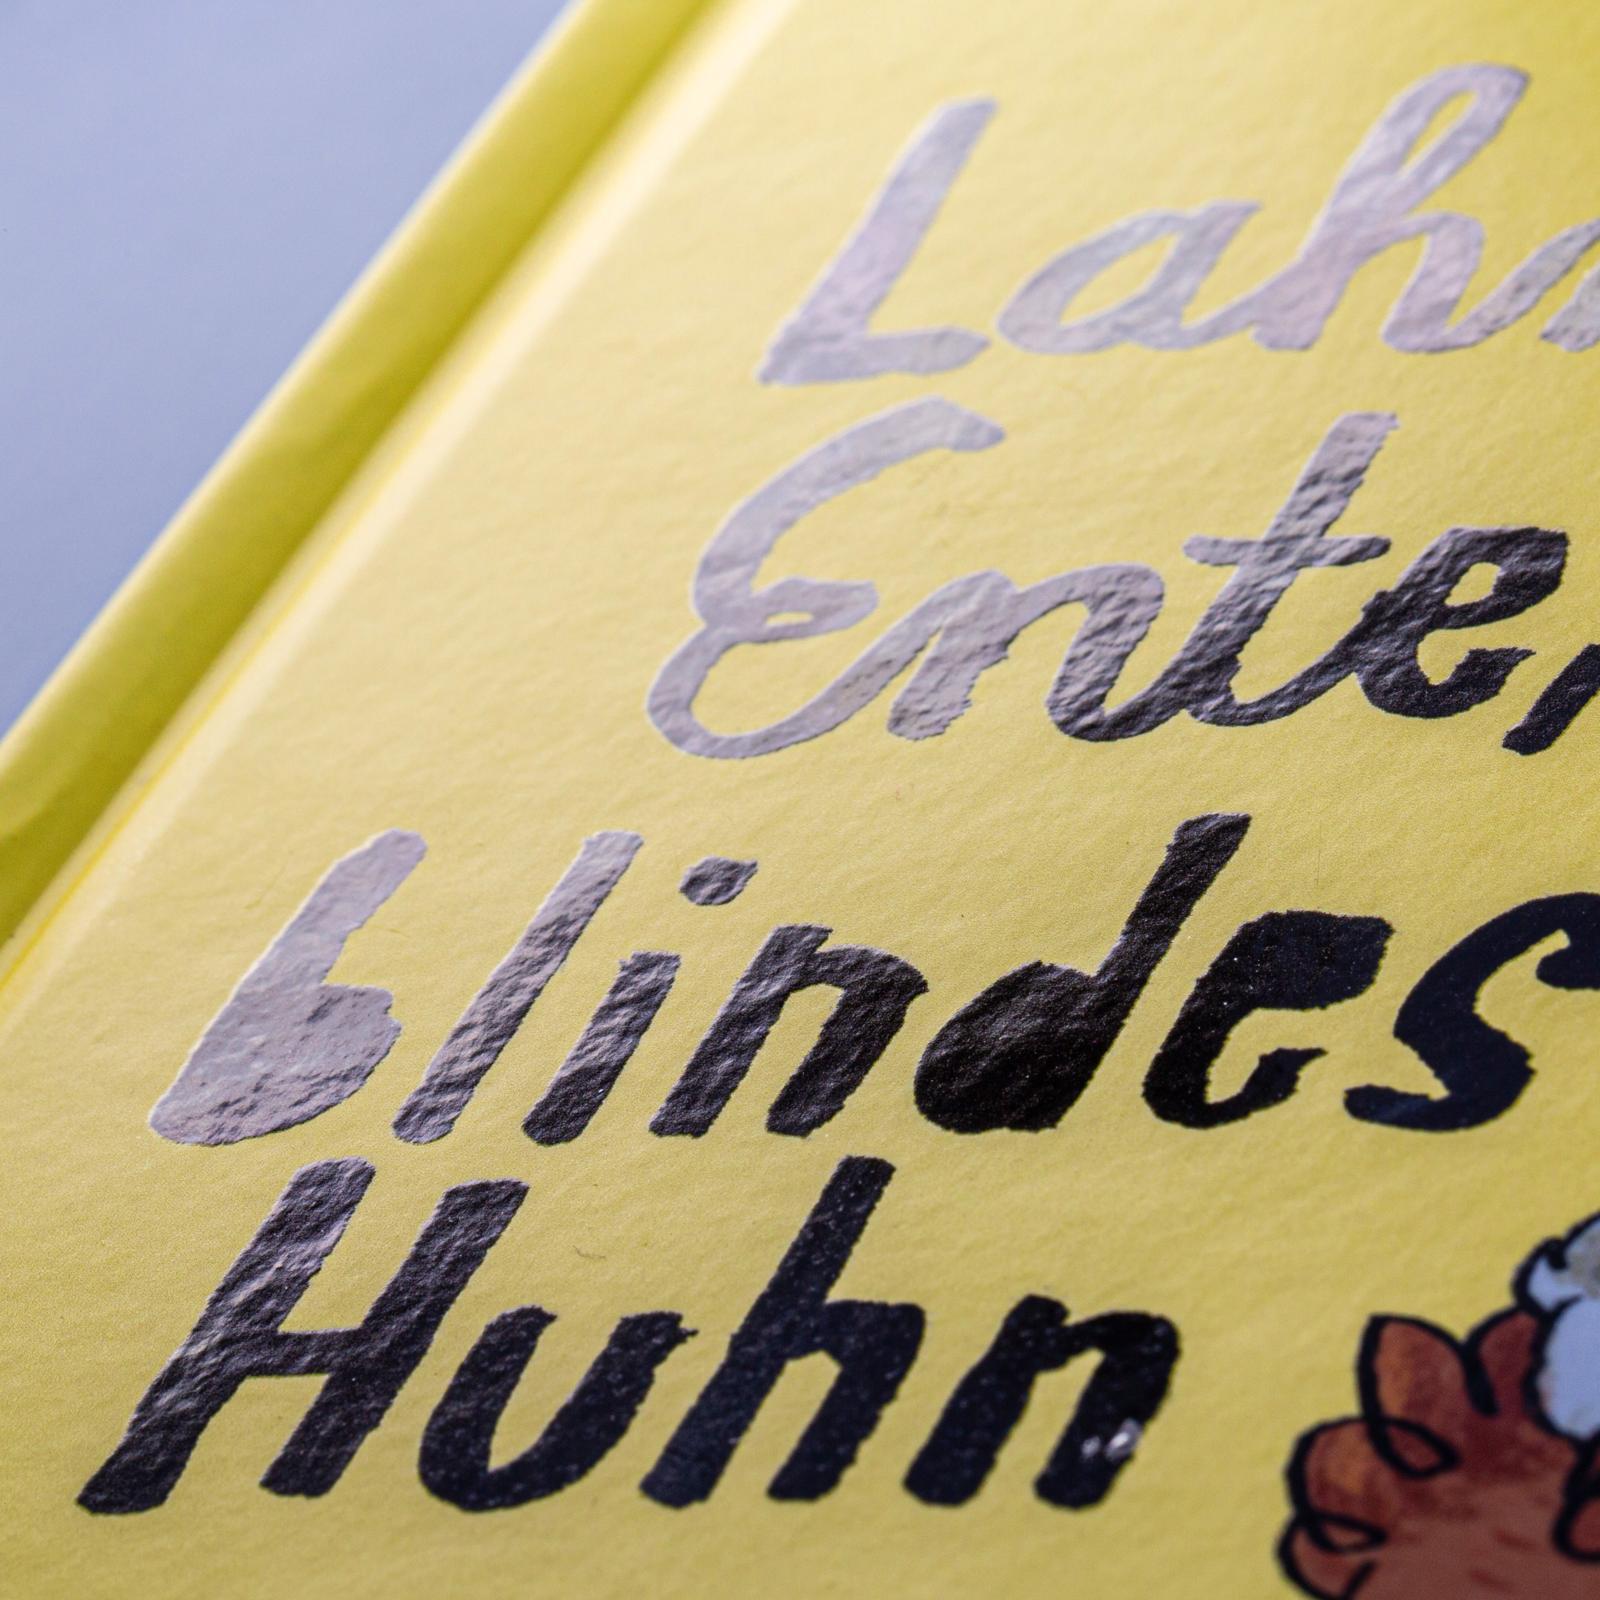 Lahm
Ente,
blindes
Huhn